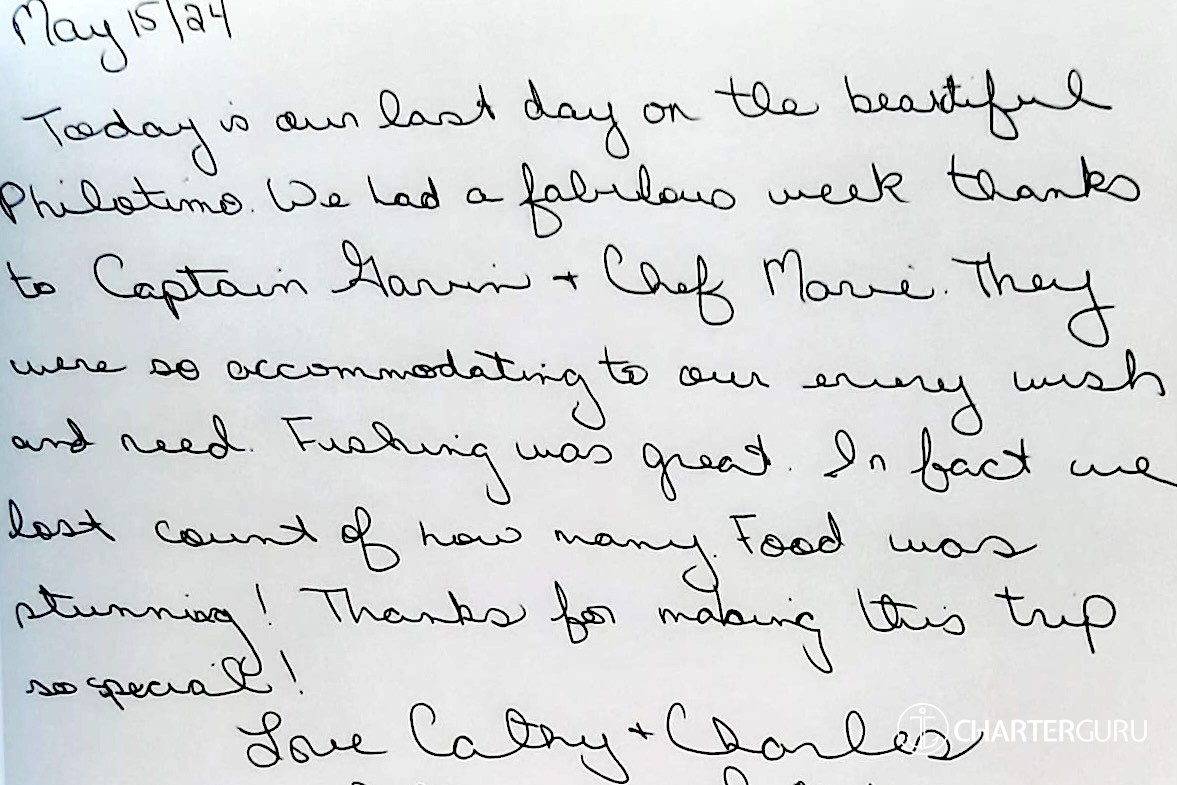 May 15/24
Today is our last day on the beautiful
Philotimo. We had a fabulous week thanks
to Captain Garvin + Chef Marie. They
were so accommodating to our every wish
and need. Fishing was great. In fact we
lost count of how many. Food was
stunning! Thanks for making this trip
so special!
Love Cathy + Charles
CHARTERGURU